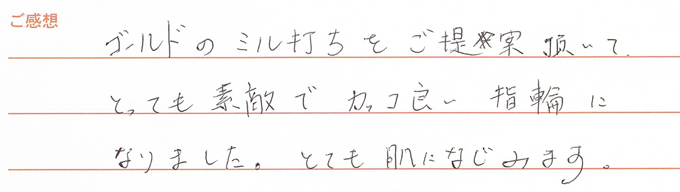 ご感想
ゴールドのミル打ちをご提案頂いて、
とっても素敵でカッコ良い指輪に
なりました。とても肌になじみます。